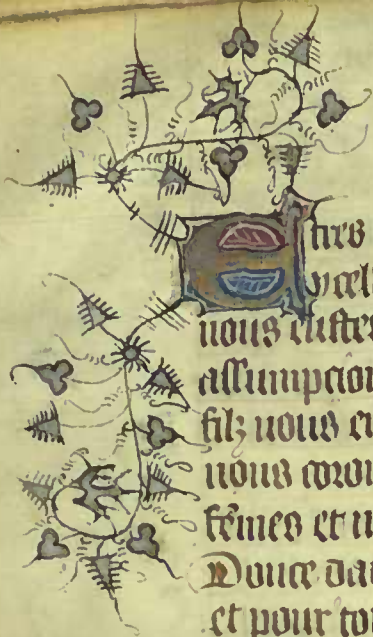 E tres
ycel
uous eustes
assumpcion
filz uous en
uous coron
femes et u
Douce dam
et pour tou